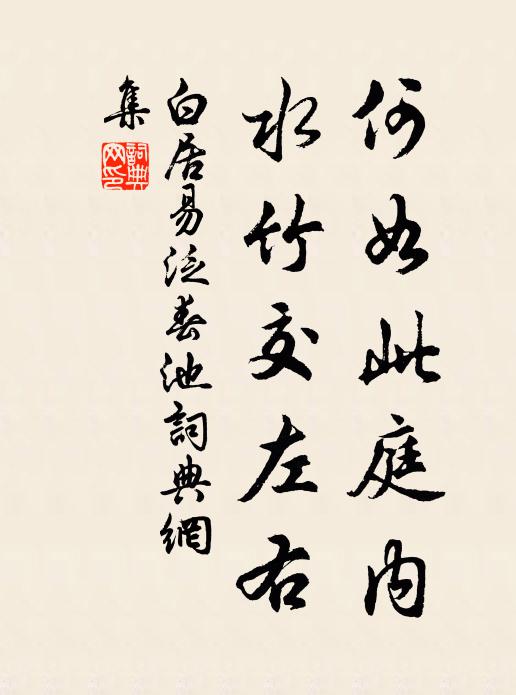 何如此庭内
水竹交左右
白居易泛春池詞典網
集
詞典網印